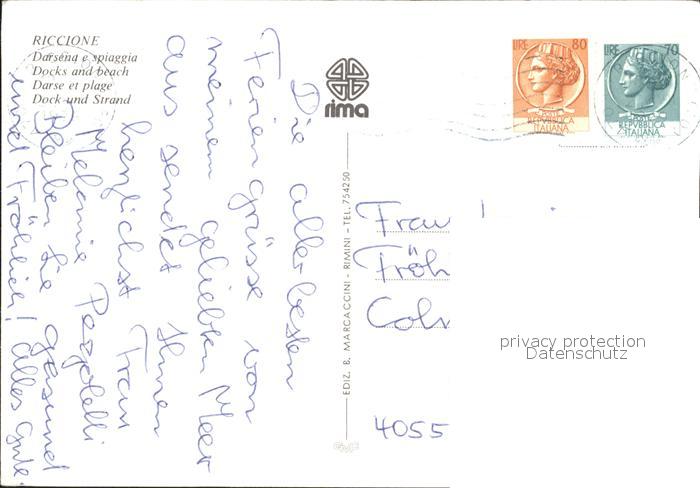 RICCIONE
Darsena e spiaggia
Docks and beach
Darse et plage
Dock und Strand
rima
LIRE 80
POSTE
REPVBBLICA
ITALIANA
LIRE 70
REPVBBLICA
ITALIANA
Die allerbesten
Feriengrüsse von
meinem geliebten Meer
aus sendet Ihnen
herzlichst Frau
Melanie
Bleiben Sie gesund
und Fröhlich! Alles Gute.
EDIZ. B. MARCACCINI - RIMINI - TEL. 754250
Frau
Fröh
4055
privacy protection
Datenschutz